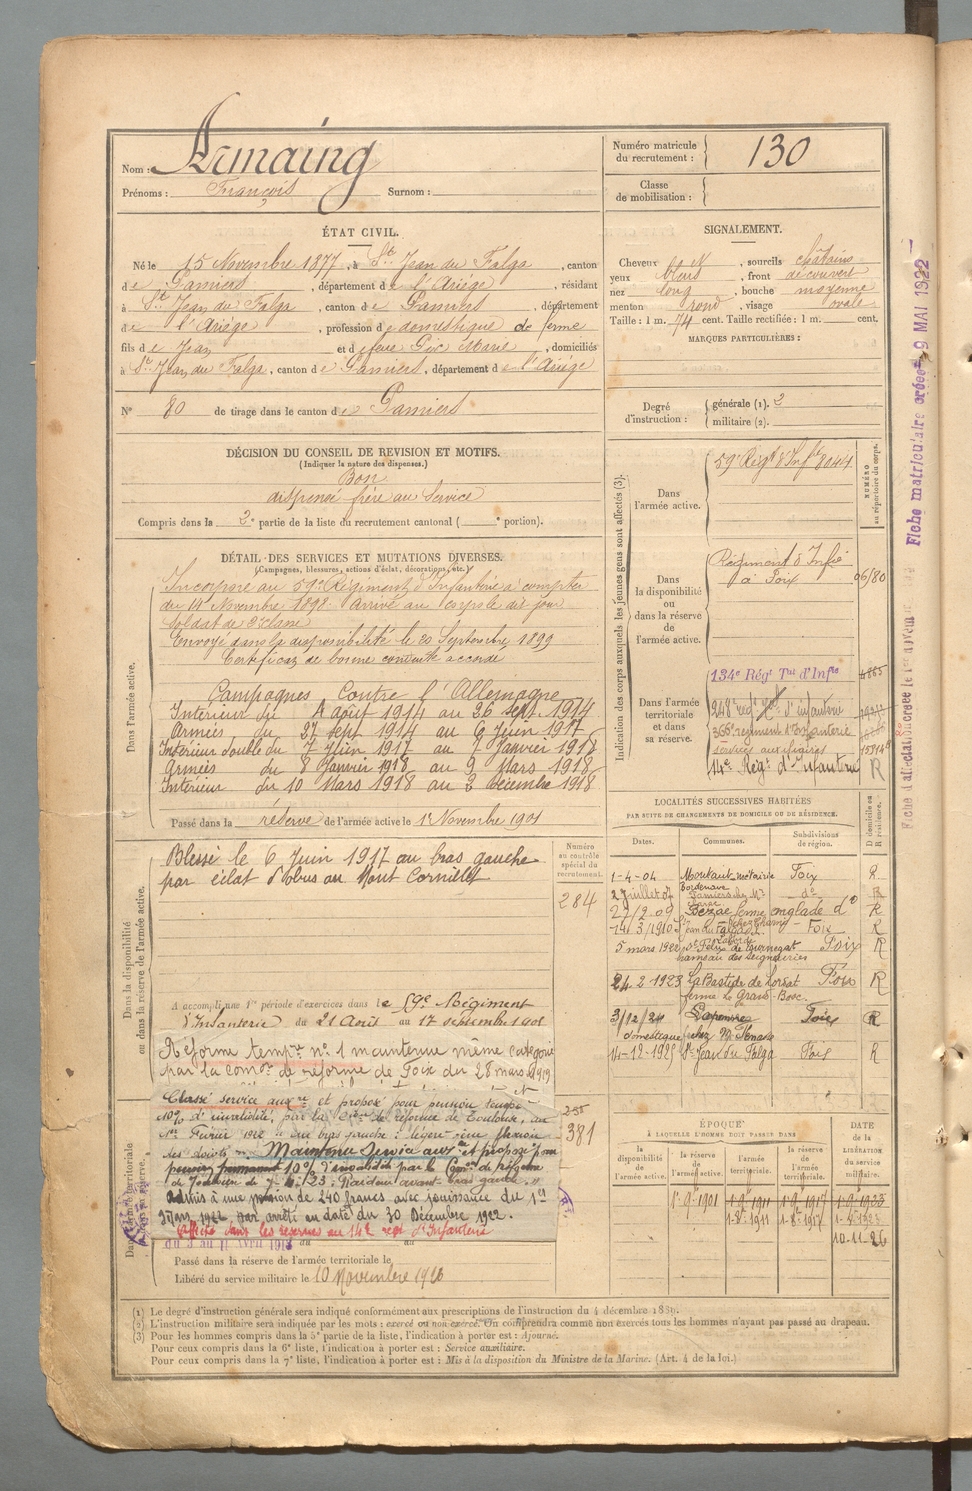 Nom : Armaing
Prénoms : François Surnom :
Numéro matricule du recrutement : 130
Classe de mobilisation :
ÉTAT CIVIL.
Né le 15 Novembre 1877, à St Jean du Falga, canton
de Pamiers, département de l'Ariège, résidant
à St Jean du Falga, canton de Pamiers, département
de l'Ariège, profession de domestique de ferme
fils de Jean et de feue Marie, domiciliés
à St Jean du Falga, canton de Pamiers, département de l'Ariège
N° 80 de tirage dans le canton de Pamiers
SIGNALEMENT.
Cheveux, sourcils châtains
yeux bleus, front découvert
nez long, bouche moyenne
menton rond, visage ovale
Taille : 1 m. 74 cent. Taille rectifiée : 1 m. cent.
MARQUES PARTICULIÈRES :
Degré d'instruction : générale (1). 2
militaire (2).
DÉCISION DU CONSEIL DE REVISION ET MOTIFS.
(Indiquer la nature des dispenses.)
Bon
dispensé frère au Service
Compris dans la 2e partie de la liste du recrutement cantonal ( e portion).
DÉTAIL DES SERVICES ET MUTATIONS DIVERSES.
(Campagnes, blessures, actions d'éclat, décorations, etc.)
Dans l'armée active.
Incorporé au 59e Régiment d'Infanterie à compter
du 14 Novembre 1898. Arrivé au corps le dit jour
Soldat de 2e classe
Envoyé dans la disponibilité le 20 Septembre 1899
Certificat de bonne conduite accordé
Campagnes Contre l'Allemagne
Intérieur du 4 août 1914 au 26 sept. 1914
Armées du 27 sept 1914 au 6 Juin 1917
Intérieur double du 7 Juin 1917 au 7 Janvier 1918
Armées du 8 Janvier 1918 au 9 Mars 1918
Intérieur du 10 Mars 1918 au 2 décembre 1918
Passé dans la réserve de l'armée active le 1er Novembre 1901
Dans la disponibilité ou dans la réserve de l'armée active.
Blessé le 6 Juin 1917 au bras gauche
par éclat d'obus au Mont Cornillet
Numéro au contrôle spécial du recrutement.
284
A accompli une 1re période d'exercices dans le 59e Régiment
d'Infanterie du 21 Août au 17 septembre 1901
Réforme tempre n° 1 maintenue même catégorie
par la comon de réforme de Foix du 28 mars 1919
Classé service auxre et proposé pour pension tempe
10% d'invalidité, par la Con de réforme de Toulouse, du
1er Février 1922
Maintenu Service auxre et proposé pour
10% d'invalidité par la Comon de réforme
Admis à une pension de 240 francs avec jouissance du 1er
par arrêté en date du 30 Décembre 1922.
Affecté dans les réserves au 14e régt d'Infanterie
381
Passé dans la réserve de l'armée territoriale le
Libéré du service militaire le 10 Novembre 1926
Indication des corps auxquels les jeunes gens sont affectés (3).
NUMÉRO au répertoire du corps.
Dans l'armée active.
59e Régt d'Infie 8044
Dans la disponibilité ou dans la réserve de l'armée active.
Régiment d'Infie
à Foix
06/80
Dans l'armée territoriale et dans sa réserve.
134e Régt Tal d'Infie
d'infanterie
366e régiment d'Infanterie
services auxiliaires
14e Régt d'Infanterie R
LOCALITÉS SUCCESSIVES HABITÉES
PAR SUITE DE CHANGEMENTS DE DOMICILE OU DE RÉSIDENCE.
Dates. Communes. Subdivisions de région. D domicile ou R résidence.
1-4-04 Montaut métairie Foix R
Bordeneuve
2 Juillet 07 Pamiers do R
27/2 09 Bézac ferme do R
14 3/1910 St Jean du Falga Foix R
5 mars 1920 Foix R
hameau des Seigneuries
24-2-1923 La Bastide de Lordat Foix R
ferme le Grand Bosc.
3/12/24 Foix R
domestique chez Mr
14-12-1925 St Jean du Falga Foix R
ÉPOQUE
À LAQUELLE L'HOMME DOIT PASSER DANS
la disponibilité de l'armée active.
la réserve de l'armée active.
l'armée territoriale.
la réserve de l'armée territoriale.
DATE de la LIBÉRATION du service militaire.
1-9-1901 1-9-1911 1-9-1917 1-9-1923
1-8-1911 1-8-1917
10-11-26
Fiche matriculaire créée 9 MAI 1922
(1) Le degré d'instruction générale sera indiqué conformément aux prescriptions de l'instruction du 4 décembre 1889.
(2) L'instruction militaire sera indiquée par les mots : exercé ou non exercé. On comprendra comme non exercés tous les hommes n'ayant pas passé au drapeau.
(3) Pour les hommes compris dans la 5e partie de la liste, l'indication à porter est : Ajourné.
Pour ceux compris dans la 6e liste, l'indication à porter est : Service auxiliaire.
Pour ceux compris dans la 7e liste, l'indication à porter est : Mis à la disposition du Ministre de la Marine. (Art. 4 de la loi.)